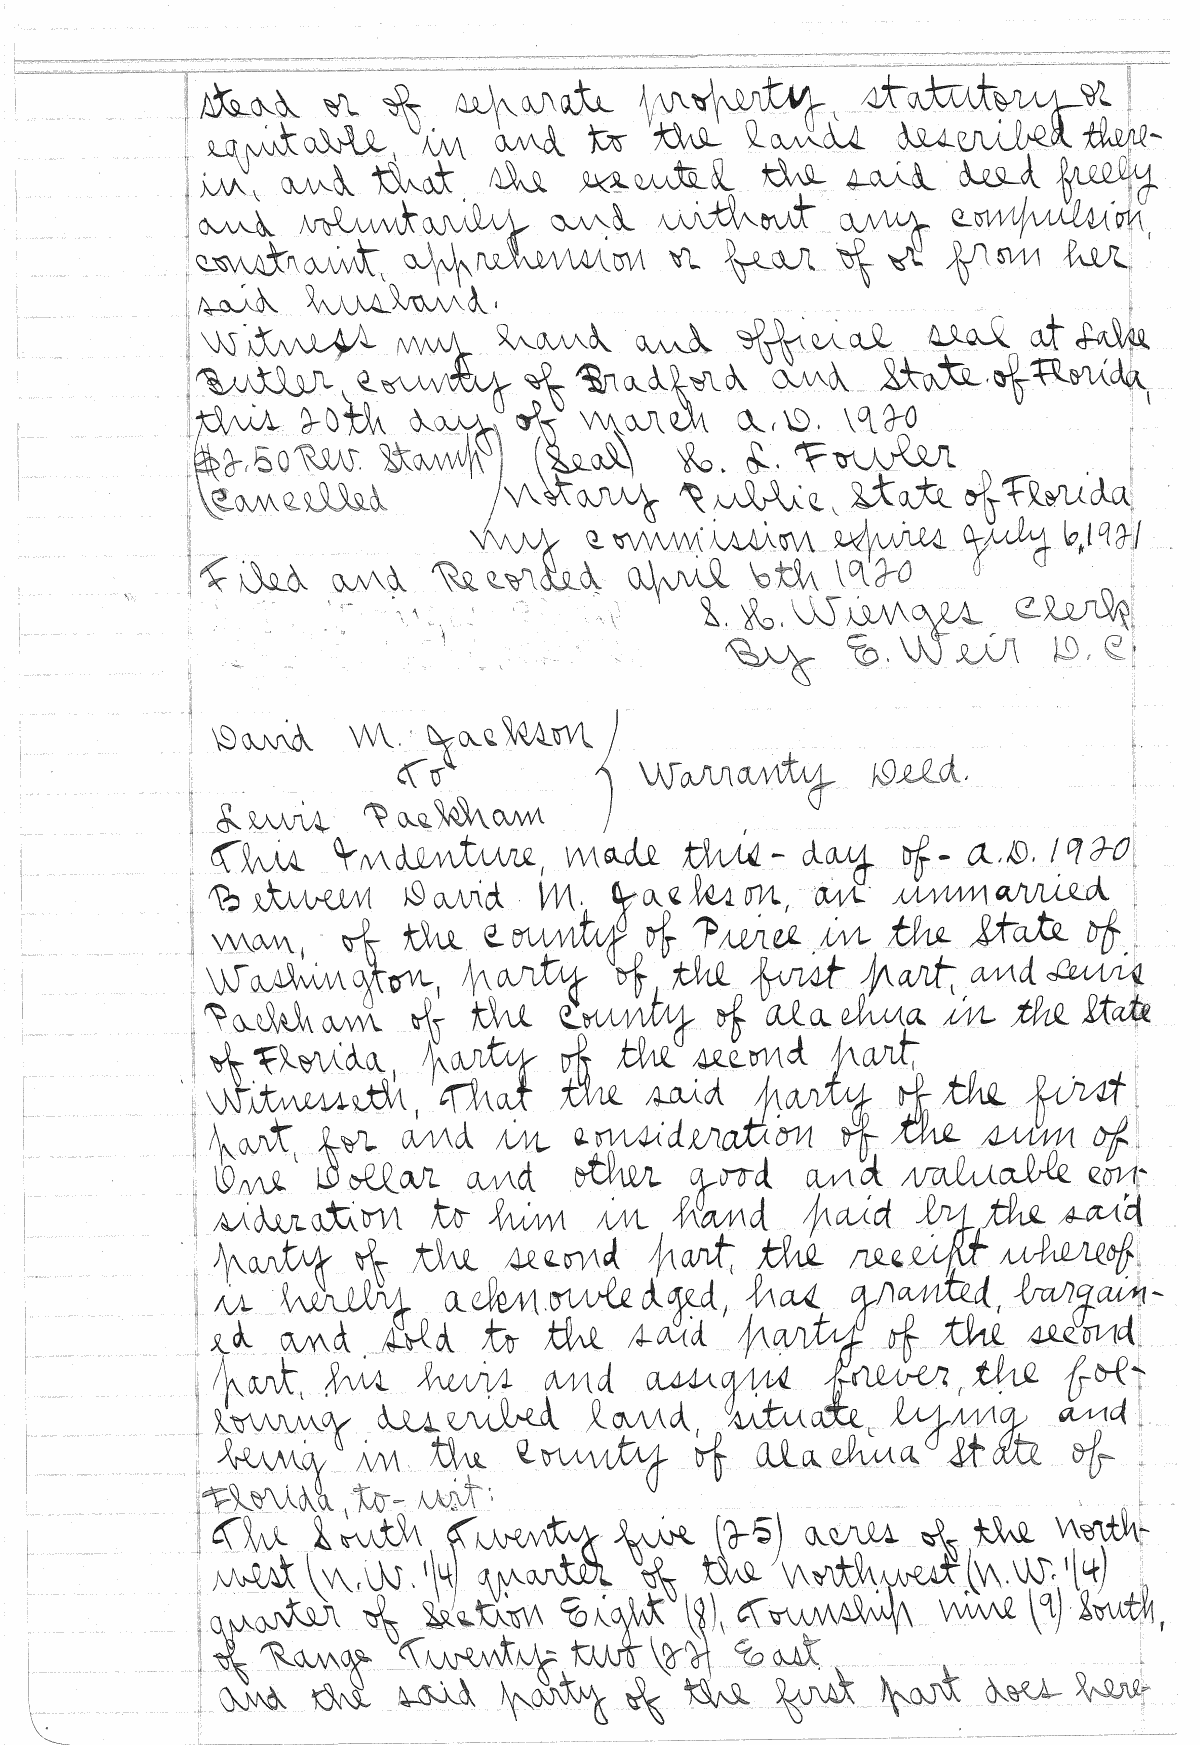 stead or of separate property, statutory or
equitable, in and to the lands described there-
in, and that she executed the said deed freely
and voluntarily and without any compulsion,
constraint, apprehension or fear of or from her
said husband.
Witness my hand and official seal at Lake
Butler, County of Bradford and State of Florida,
this 20th day of March A.D. 1920
($2.50 Rev. Stamp) (Seal) H. L. Fowler
(Cancelled ) Notary Public, State of Florida
My commission expires July 6, 1921
Filed and Recorded April 6th 1920
S. H. Wienges Clerk
By E. Weir D.C.
David M. Jackson
To } Warranty Deed.
Lewis Packham
This Indenture, made this - day of - A.D. 1920
Between David M. Jackson, an unmarried
man, of the County of Pierce in the State of
Washington, party of the first part, and Lewis
Packham of the County of Alachua in the State
of Florida, party of the second part,
Witnesseth, That the said party of the first
part, for and in consideration of the sum of
One Dollar and other good and valuable con-
sideration to him in hand paid by the said
party of the second part, the receipt whereof
is hereby acknowledged, has granted, bargain-
ed and sold to the said party of the second
part, his heirs and assigns forever, the fol-
lowing described land, situate, lying and
being in the County of Alachua State of
Florida, to-wit:
The South Twenty five (25) acres of the North-
west (N.W. 1/4) quarter of the Northwest (N.W. 1/4)
quarter of Section Eight (8), Township nine (9) South,
of Range Twenty-two (22) East
And the said party of the first part does here-